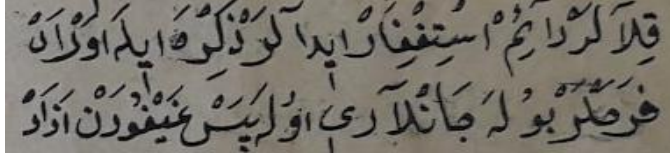 قِلَالَرْ دَائِمْ اسْتِغْفَارْ ايدَالَرْ ذِكْرَه ايلَه اَوْرَادْ
قَرَمَلَرْ بُولَه جَانْلَارِي اوُلَه پَسْ غَيْغُودَنْ اٰزَادْ